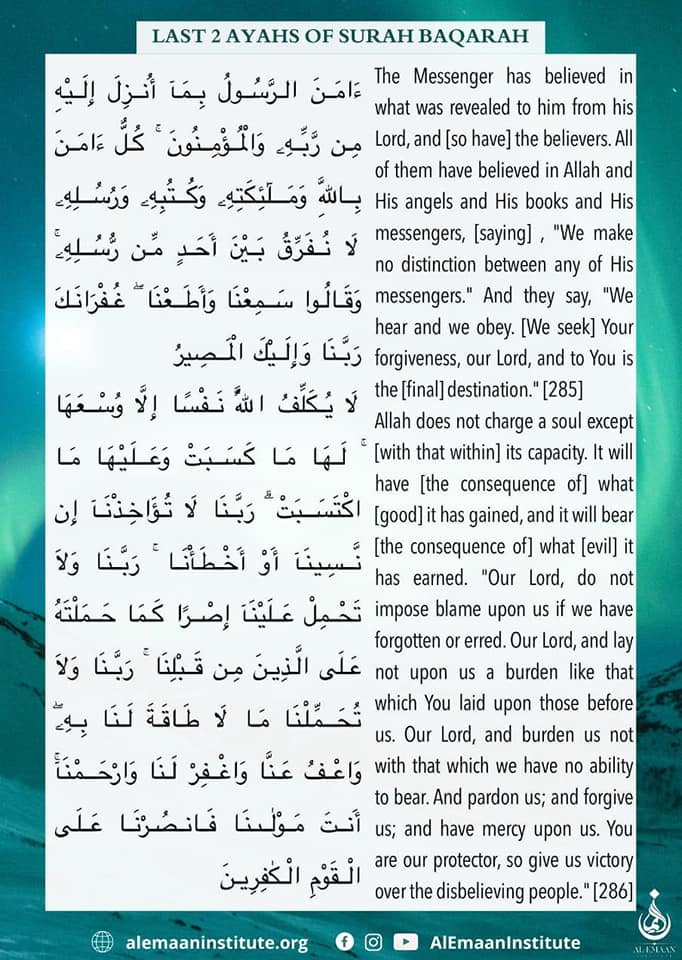 LAST 2 AYAHS OF SURAH BAQARAH
ءَامَنَ الرَّسُولُ بِمَآ أُنزِلَ إِلَيْهِ
مِن رَّبِّهِۦ وَالْمُؤْمِنُونَ ۚ كُلٌّ ءَامَنَ
بِاللَّهِ وَمَلَٰٓئِكَتِهِۦ وَكُتُبِهِۦ وَرُسُلِهِۦ
لَا نُفَرِّقُ بَيْنَ أَحَدٍ مِّن رُّسُلِهِۦ ۚ
وَقَالُوا سَمِعْنَا وَأَطَعْنَا ۖ غُفْرَانَكَ
رَبَّنَا وَإِلَيْكَ الْمَصِيرُ
لَا يُكَلِّفُ اللَّهُ نَفْسًا إِلَّا وُسْعَهَا
ۚ لَهَا مَا كَسَبَتْ وَعَلَيْهَا مَا
اكْتَسَبَتْ ۗ رَبَّنَا لَا تُؤَاخِذْنَآ إِن
نَّسِينَآ أَوْ أَخْطَأْنَا ۚ رَبَّنَا وَلَا
تَحْمِلْ عَلَيْنَآ إِصْرًا كَمَا حَمَلْتَهُ
عَلَى الَّذِينَ مِن قَبْلِنَا ۚ رَبَّنَا وَلَا
تُحَمِّلْنَا مَا لَا طَاقَةَ لَنَا بِهِۦ ۖ
وَاعْفُ عَنَّا وَاغْفِرْ لَنَا وَارْحَمْنَآ ۚ
أَنتَ مَوْلَىٰنَا فَانصُرْنَا عَلَى
الْقَوْمِ الْكَٰفِرِينَ
The Messenger has believed in
what was revealed to him from his
Lord, and [so have] the believers. All
of them have believed in Allah and
His angels and His books and His
messengers, [saying] , "We make
no distinction between any of His
messengers." And they say, "We
hear and we obey. [We seek] Your
forgiveness, our Lord, and to You is
the [final] destination." [285]
Allah does not charge a soul except
[with that within] its capacity. It will
have [the consequence of] what
[good] it has gained, and it will bear
[the consequence of] what [evil] it
has earned. "Our Lord, do not
impose blame upon us if we have
forgotten or erred. Our Lord, and lay
not upon us a burden like that
which You laid upon those before
us. Our Lord, and burden us not
with that which we have no ability
to bear. And pardon us; and forgive
us; and have mercy upon us. You
are our protector, so give us victory
over the disbelieving people." [286]
alemaaninstitute.org
AlEmaanInstitute
AL-EMAAN